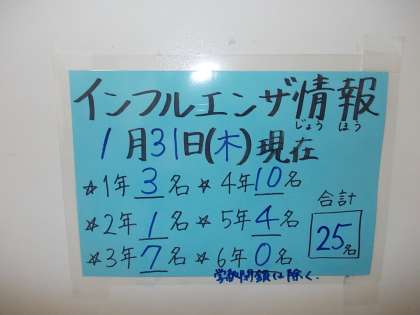 インフルエンザ情報
じょう ほう
1月31日(木)現在
☆1年 3名 ☆4年 10名
☆2年 1名 ☆5年 4名
☆3年 7名 ☆6年 0名
合計
25名
学級閉鎖は除く.